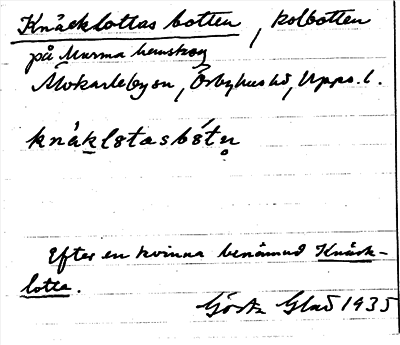 Knäcklottas botten, kolbotten
på Murma hemskog
Mokarlebyson, Örbyhus hd, Upps. l.
knäklotasbótn̥
Efter en kvinna benämnd Knäck-
lotta.
Gösta Glad 1935